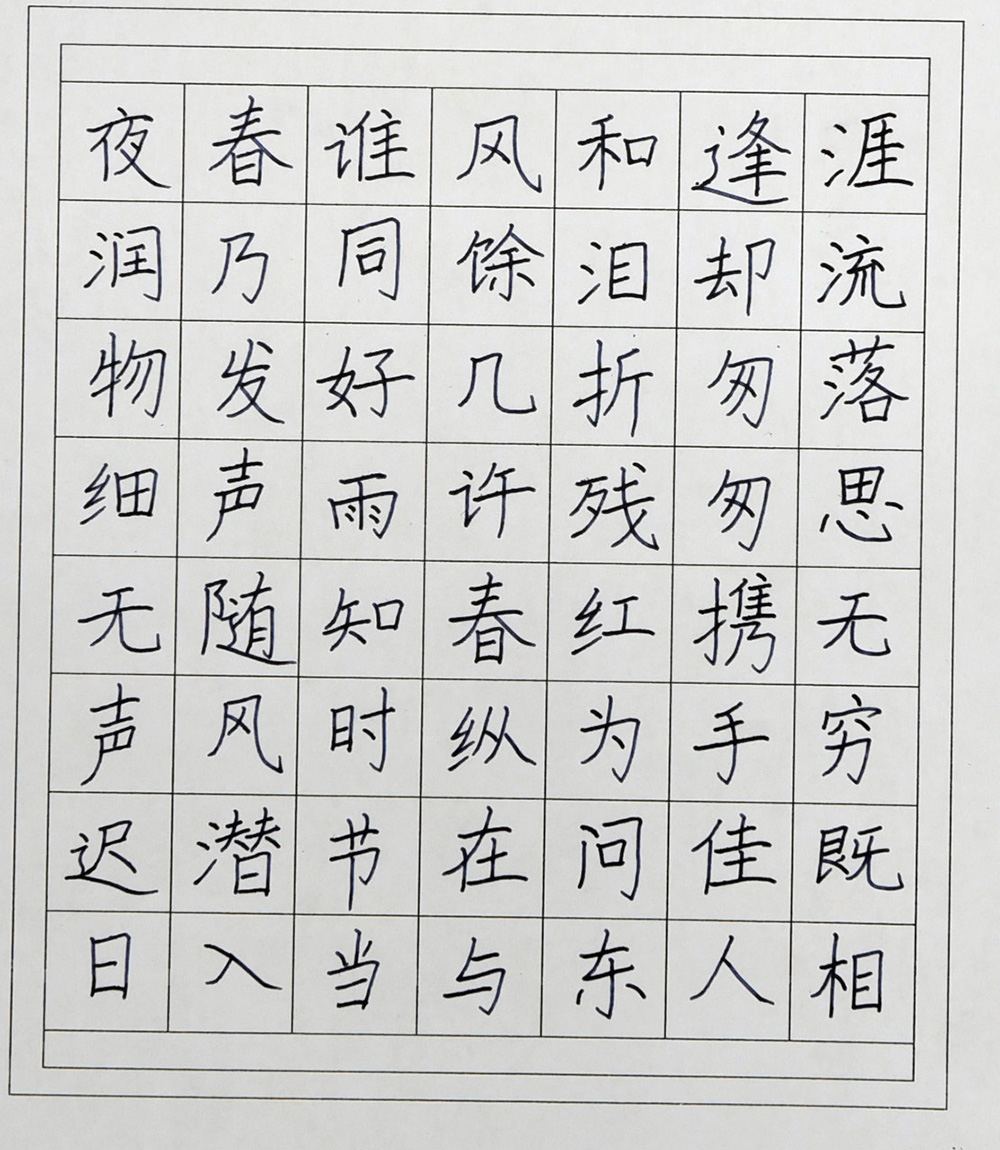 涯流落思无穷既相
逢却匆匆携手佳人
和泪折残红为问东
风馀几许春纵在与
谁同好雨知时节当
春乃发声随风潜入
夜润物细无声迟日